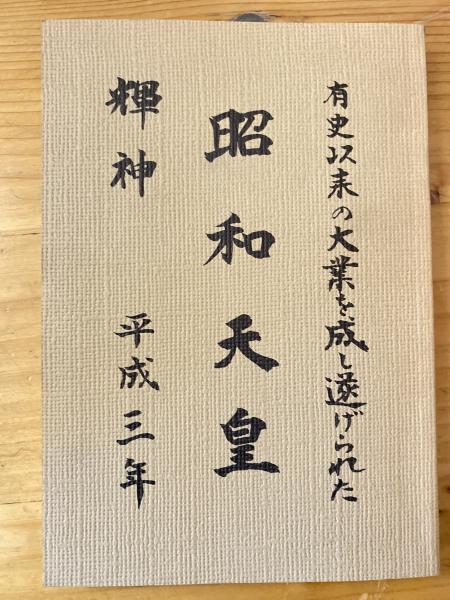 有史以来の大業を成し遂げられた
昭和天皇
輝神 平成三年